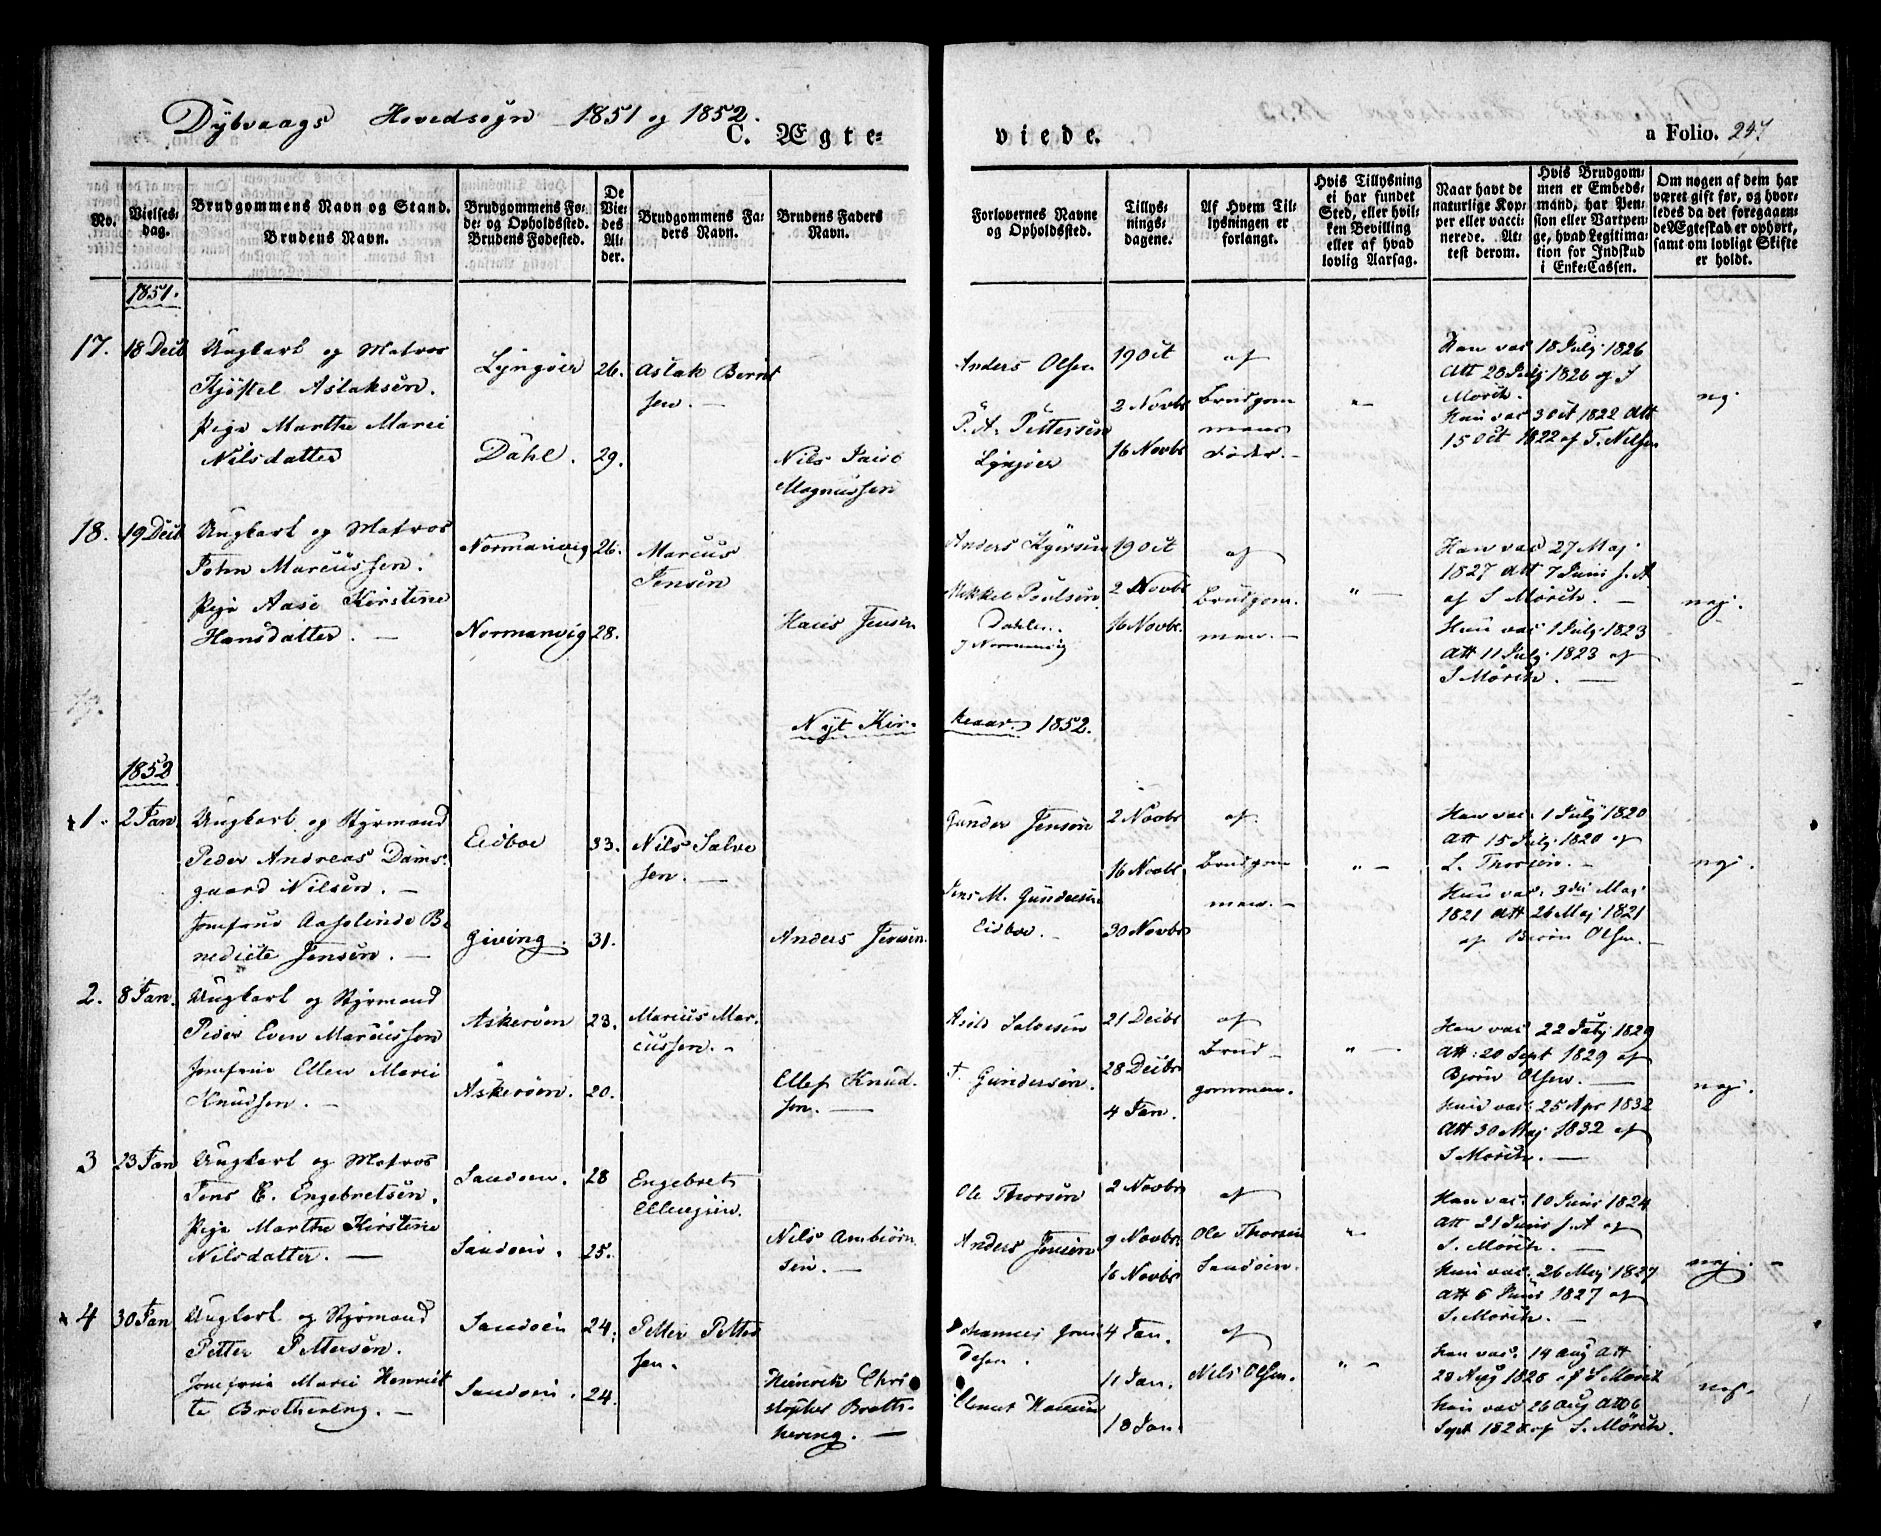 Dybvaags Hovedsogn 1851 og 1852.
C. Ægteviede.
a Folio. 247
No.
Vielsesdag.
Brudgommens Navn og Stand.
Brudens Navn.
Brudgommens Føde- og Opholdssted.
Brudens Fødested.
De Viedes Alder.
Brudgommens Faders Navn.
Brudens Faders Navn.
Forlovernes Navne og Opholdssted.
Tillysningsdagene.
Af Hvem Tillysningen er forlangt.
Hvis Tillysning ei har fundet Sted, eller hvilken Bevilling eller af hvad lovlig Aarsag.
Naar havt de naturlige Kopper eller vaccinerede. Attest derom.
Hvis Brudgommen er Embedsmand, har Pension eller Vartpenge, hvad Legitimation for Indskud i Enke-Cassen.
Om nogen af dem har været gift før, og hvorledes da det foregaaende Ægteskab er ophørt, samt om lovligt Skifte er holdt.
1851.
17. 18 Decb Ungkarl og Matros Lyngøer 26. Aslak Bernt Anders Olsen 19 Oct af Han vac 18 July 1826
Kjøstel Aslaksen. sen. Att 28 July 1826 af S
Mørch. nej
Pige Marthe Marie P. A. Pettersen 2 Novbr Brudgom Hun vac 3 Oct 1822 Att
Nilsdatter Dahl. 29. Nils Lyngøer 16 Novbr mans Fader. 15 Oct 1822 af T. Nilsen
Magnussen
18. 19 Decb Ungkarl og Matros Normanvig 26. Marcus Anders 19 Oct af Han vac 27 Maj
John Marcussen. Jensen 1827 Att 7 Juni s. A
Pige Aase Kirstine Mikkel Poulsen 2 Novbr Brudgom af S Mørch. nej.
Hansdatter. Normanvig 28. Hans Jensen Dahlen. 16 Novbr. men. Hun vac 1 July 1823
Normanvig Att 11 July 1823 af
S Mørch.
19.
Nyt Kirkeaar 1852.
1852
1. 2 Jan. Ungkarl og Styrmand Eidboe 33. Nils Salve Gunder Jensen 2 Novbr af Han vac 1 July 1820
Peder Andreas Dams sen. Att 15 July 1820 af
gaard Nilsen. 16 Novbr Brudgom L. Thorsen. nej.
Jomfrue Aaselinde Be Jens M. Gundersen men. Hun vac 3die Maj
nedicte Jensen. Giving. 31. Anders Jensen Eidboe. 30 Novbr 1821 Att 26 Maj 1821
af Bjørn Olsen.
2. 8 Jan. Ungkarl og Styrmand Askerøen 23. Marius Mar Salvesen 21 Decbr af Han vac 22 July 1829
Peder Even Marcussen cussen. Att: 20 Sept 1829 af
Jomfrue Ellen Marie Askerøen. 20. Ellef Knud T. Gundersen. 28 Decbr Brudgommen. Bjørn Olsen. nej.
Knudsen. sen. 4 Jan. Hun vac: 25 Apr 1832
Att 30 Maj 1832 af
S Mørch.
3 23 Jan Ungkarl og Matros Sandøen. 28 Engebret Ole Thorsen 2 Novbr af Han vac. 10 Juni 1824
Jens E. Engebretsen. Ellingsen. Att 21 Juni s. A af
Pige Marthe Kirstine Sandøen. 25. Nils Ambiørn Anders Jensen 9 Novbr. Ole Thorsen S. Mørch.
Nilsdatter. sen. 16 Novbr Sandøen. Hun vac. 26 Maj 1827 nej.
Att 6 Juni 1827 af
S. Mørch.
4 30 Jan Ungkarl og Styrmand Sandøen 24. Petter Petter Johannes 4 Jan. af Han vac. 14 Aug Att
Petter Pettersen. sen. 11 Jan. Nils Olsen. 28 Aug 1828 af S Mørch nej.
Jomfrue Marie Henriet Sandøen. 24. Heinrik Chri Hansen Hun vac 26 Aug Att 6
te Brothering. stopher Broth 18 Jan. Sept 1828 af S. Mørch.
hering.